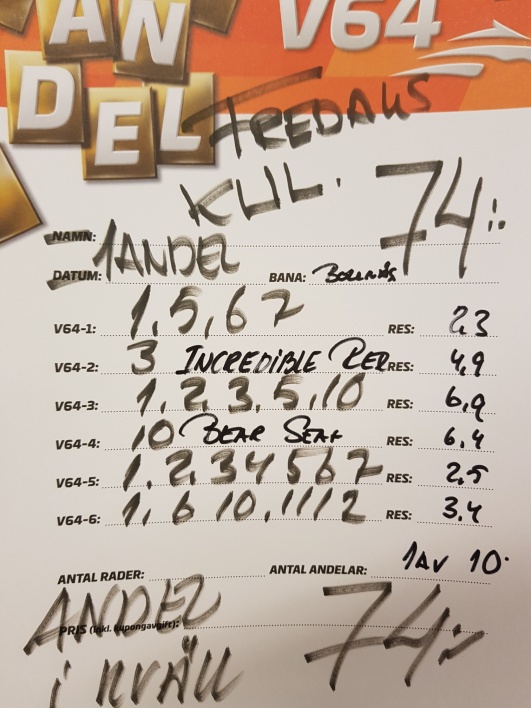 AN
DEL
V64
FREDAGS
KUL.
74:-
NAMN: 1 ANDEL
DATUM: BANA: Bollnäs
V64-1: 1,5,6 7 RES: 2,3
V64-2: 3 INCREDIBLE PER RES: 4,9
V64-3: 1,2,3,5,10 RES: 6,9
V64-4: 10 BEAR SEAF RES: 6,4
V64-5: 1,2,3 4 5 6 7 RES: 2,5
V64-6: 1,6 10,11 12 RES: 3,4
ANTAL RADER: ANTAL ANDELAR: 1 AV 10.
ANDEL 74:-
PRIS (inkl. kupongavgift):
i KVÄLL